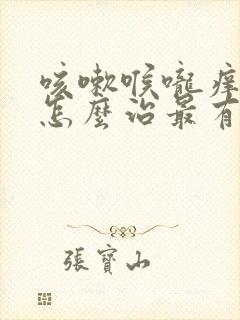 咳嗽喉嚨痒
怎麼治最有
張寶山